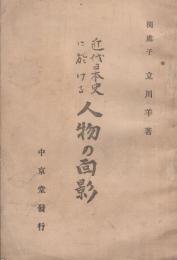 閑處子 立川平著
近代日本史
に於ける
人物の面影
中京堂發行